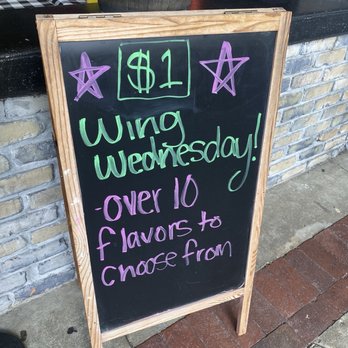 $1
Wing
Wednesday!
-over 10
flavors to
choose from